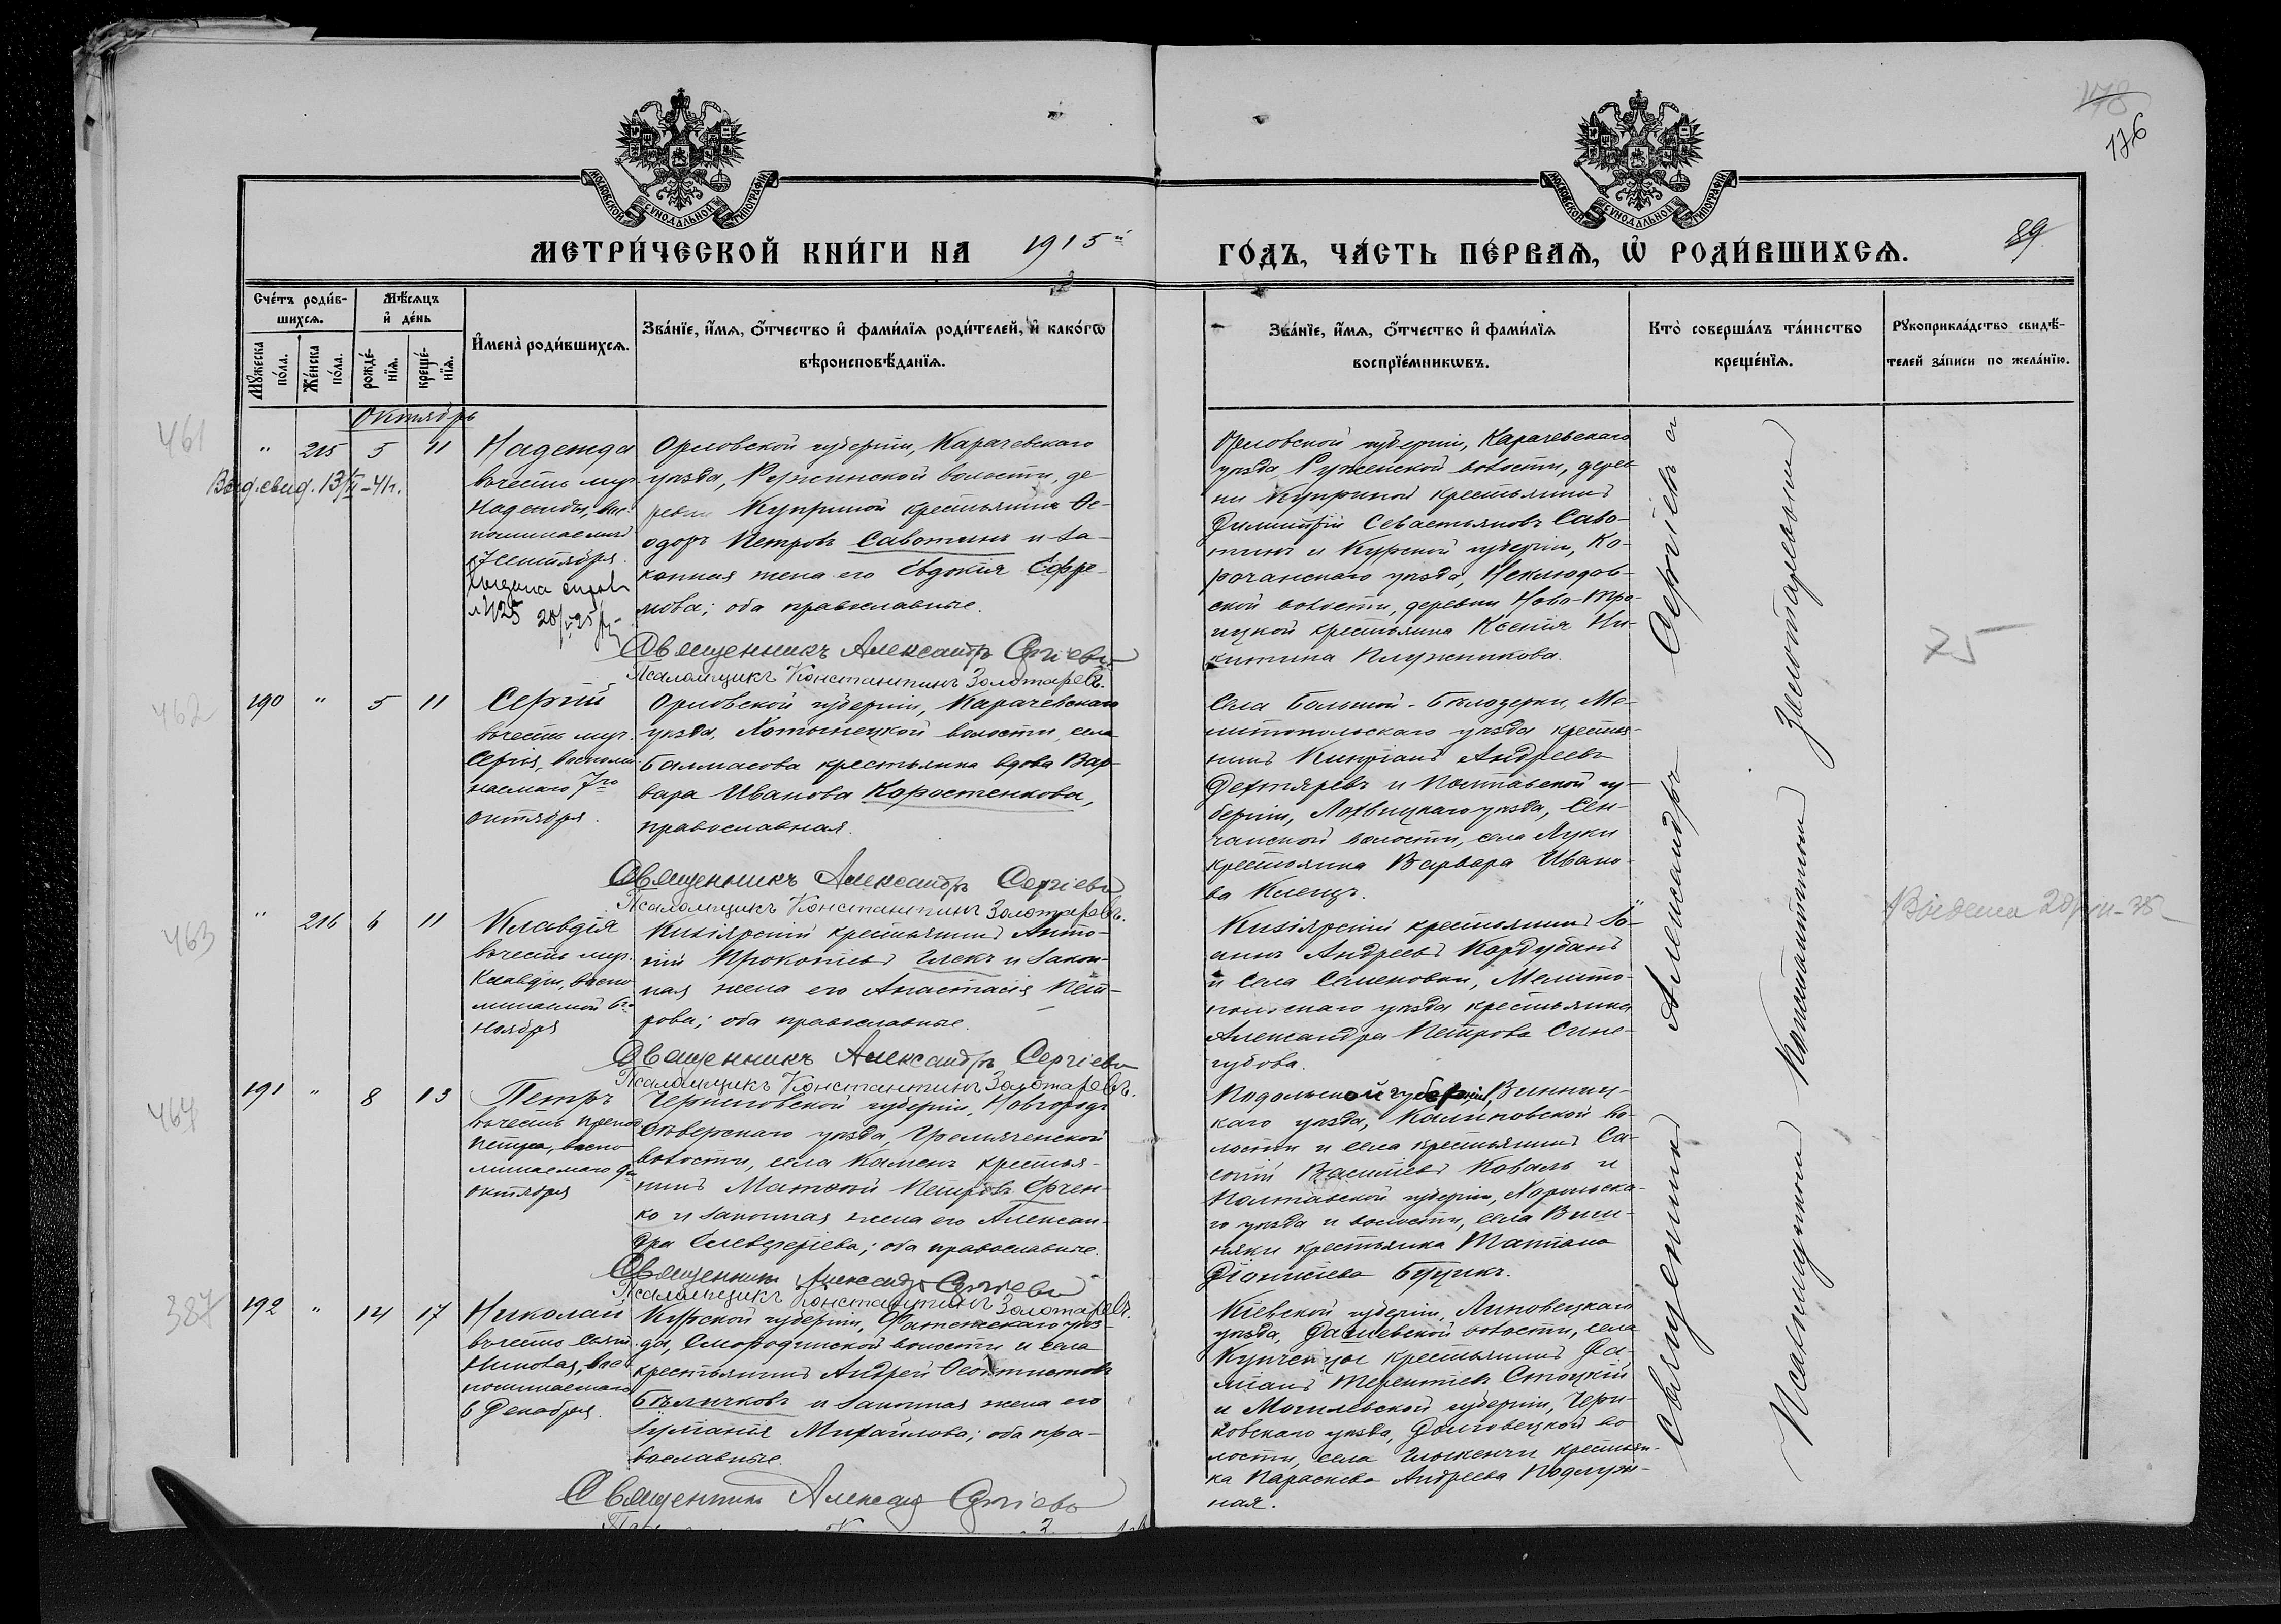 178
176
МОСКОВСКОЙ СУНОДАЛЬНОЙ ТИПОГРАФІИ
МОСКОВСКОЙ СУНОДАЛЬНОЙ ТИПОГРАФІИ
МЕТРИ́ЧЕСКОЙ КНИ́ГИ НА 1915й
ГО́ДЪ, ЧА́СТЬ ПЕ́РВАѦ, Ѡ҆ РОДИ́ВШИХСѦ.
89
Сче́тъ роди́в-
шихсѧ.
Мѣ́сѧцъ
и҆ де́нь
Мꙋ́жеска
по́ла.
Же́нска
по́ла.
рожде́-
нїѧ.
креще́-
нїѧ.
И҆мена̀ роди́вшихсѧ.
Зва́нїе, и҆́мѧ, ѻ҆́тчество и҆ фами́лїѧ роди́телей, и҆ како́гѡ
вѣроисповѣ́данїѧ.
Зва́нїе, и҆́мѧ, ѻ҆́тчество и҆ фами́лїѧ
воспрїе́мникѡвъ.
Кто̀ соверша́лъ та́инство
креще́нїѧ.
Рꙋкоприкла́дство свидѣ́-
телей за́писи по жела́нїю.
Октябрь
461
" 215 5 11
Выд. свид. 13/II-41г.
Надежда
въ честь муч.
Надежды, вос-
поминаемой
17 сентября.
Выдана справ
№125 28/V 25
Орловской губерніи, Карачевскаго
уѣзда, Ружинской волости, де-
ревни Куприной крестьянинъ Ѳе-
одоръ Петровъ Савотинъ и за-
конная жена его Евдокія Ефре-
мова; оба православные.
Священникъ Александръ Сергіевъ
Псаломщикъ Константинъ Золотаревъ.
Орловской губерніи, Карачевскаго
уѣзда, Руженской волости, дерев-
ни Куприной крестьянинъ
Димитрій Севастьяновъ Саво-
тинъ и Курской губерніи, Ко-
рочанскаго уѣзда, Неклюдов-
ской волости, деревни Ново-Тро-
ицкой крестьянка Ксенія Ни-
китина Плужникова.
75
462
190 " 5 11
Сергій
въ честь муч.
Сергія, воспоми-
наемаго 7го
октября.
Орловской губерніи, Карачевскаго
уѣзда, Хотынецкой волости, села
Балмасова крестьянка вдова Вар-
вара Иванова Коростенкова,
православная.
Священникъ Александръ Сергіевъ
Псаломщикъ Константинъ Золотаревъ.
Села Большой-Бѣлозерки, Ме-
литопольскаго уѣзда крестья-
нинъ Кипріанъ Андреевъ
Дехтяревъ и Полтавской гу-
берніи, Лохвицкаго уѣзда, Сен-
чанской волости, села Луки
крестьянка Варвара Ивано-
ва Клещъ.
463
" 216 6 11
Клавдія
въ честь муч.
Клавдіи, воспо-
минаемой 6го
ноября
Кизіярскій крестьянинъ Анто-
ній Прокопіевъ Глекъ и закон-
ная жена его Анастасія Пет-
рова; оба православные.
Священникъ Александръ Сергіевъ
Псаломщикъ Константинъ Золотаревъ.
Кизіярскій крестьянинъ Іо-
аннъ Андреевъ Кордубанъ
и села Семеновки, Мелито-
польскаго уѣзда крестьянка
Александра Петрова Сине-
губова.
464
191 " 8 13
Петръ
въ честь препод
Петра, воспо-
минаемаго 9го
октября
Черниговской губерніи, Новгородъ
Сѣверскаго уѣзда, Гремяченской
волости, села Камень крестья-
нинъ Матѳей Петровъ Ерчен-
ко и законная жена его Алексан-
дра Елевѳеріева; оба православные.
Священникъ Александръ Сергіевъ
Псаломщикъ Константинъ Золотаревъ.
Подольской губерніи, Винниц-
каго уѣзда, Калиновской во-
лости и села крестьянинъ Са-
Васильевъ Коваль и
Полтавской губерніи, Хорольска-
го уѣзда и волости, села Виш-
няки крестьянка Татіана
Діонисіева Буцикъ.
387
192 " 14 17
Николай
въ честь свят.
Николая, вос-
поминаемаго
6 Декабря.
Курской губерніи, Фатежскаго уѣз-
да, Смородинской волости и села
крестьянинъ Андрей Ѳеоктистовъ
Бѣличковъ и законная жена его
Іуліанія Михайлова; оба пра-
вославные.
Священникъ Александръ Сергіевъ
Кіевской губерніи, Липовецкаго
уѣзда, Дашевской волости, села
Купченцы крестьянинъ Да-
міанъ Терентіевъ Стоцкій
и Могилевской губерніи, Чери-
ковскаго уѣзда, Долговецкой во-
лости, села крестьян-
ка Параскева Андреева Подлуж-
ная.
Священникъ Александръ Сергіевъ
Псаломщикъ Константинъ Золотаревъ